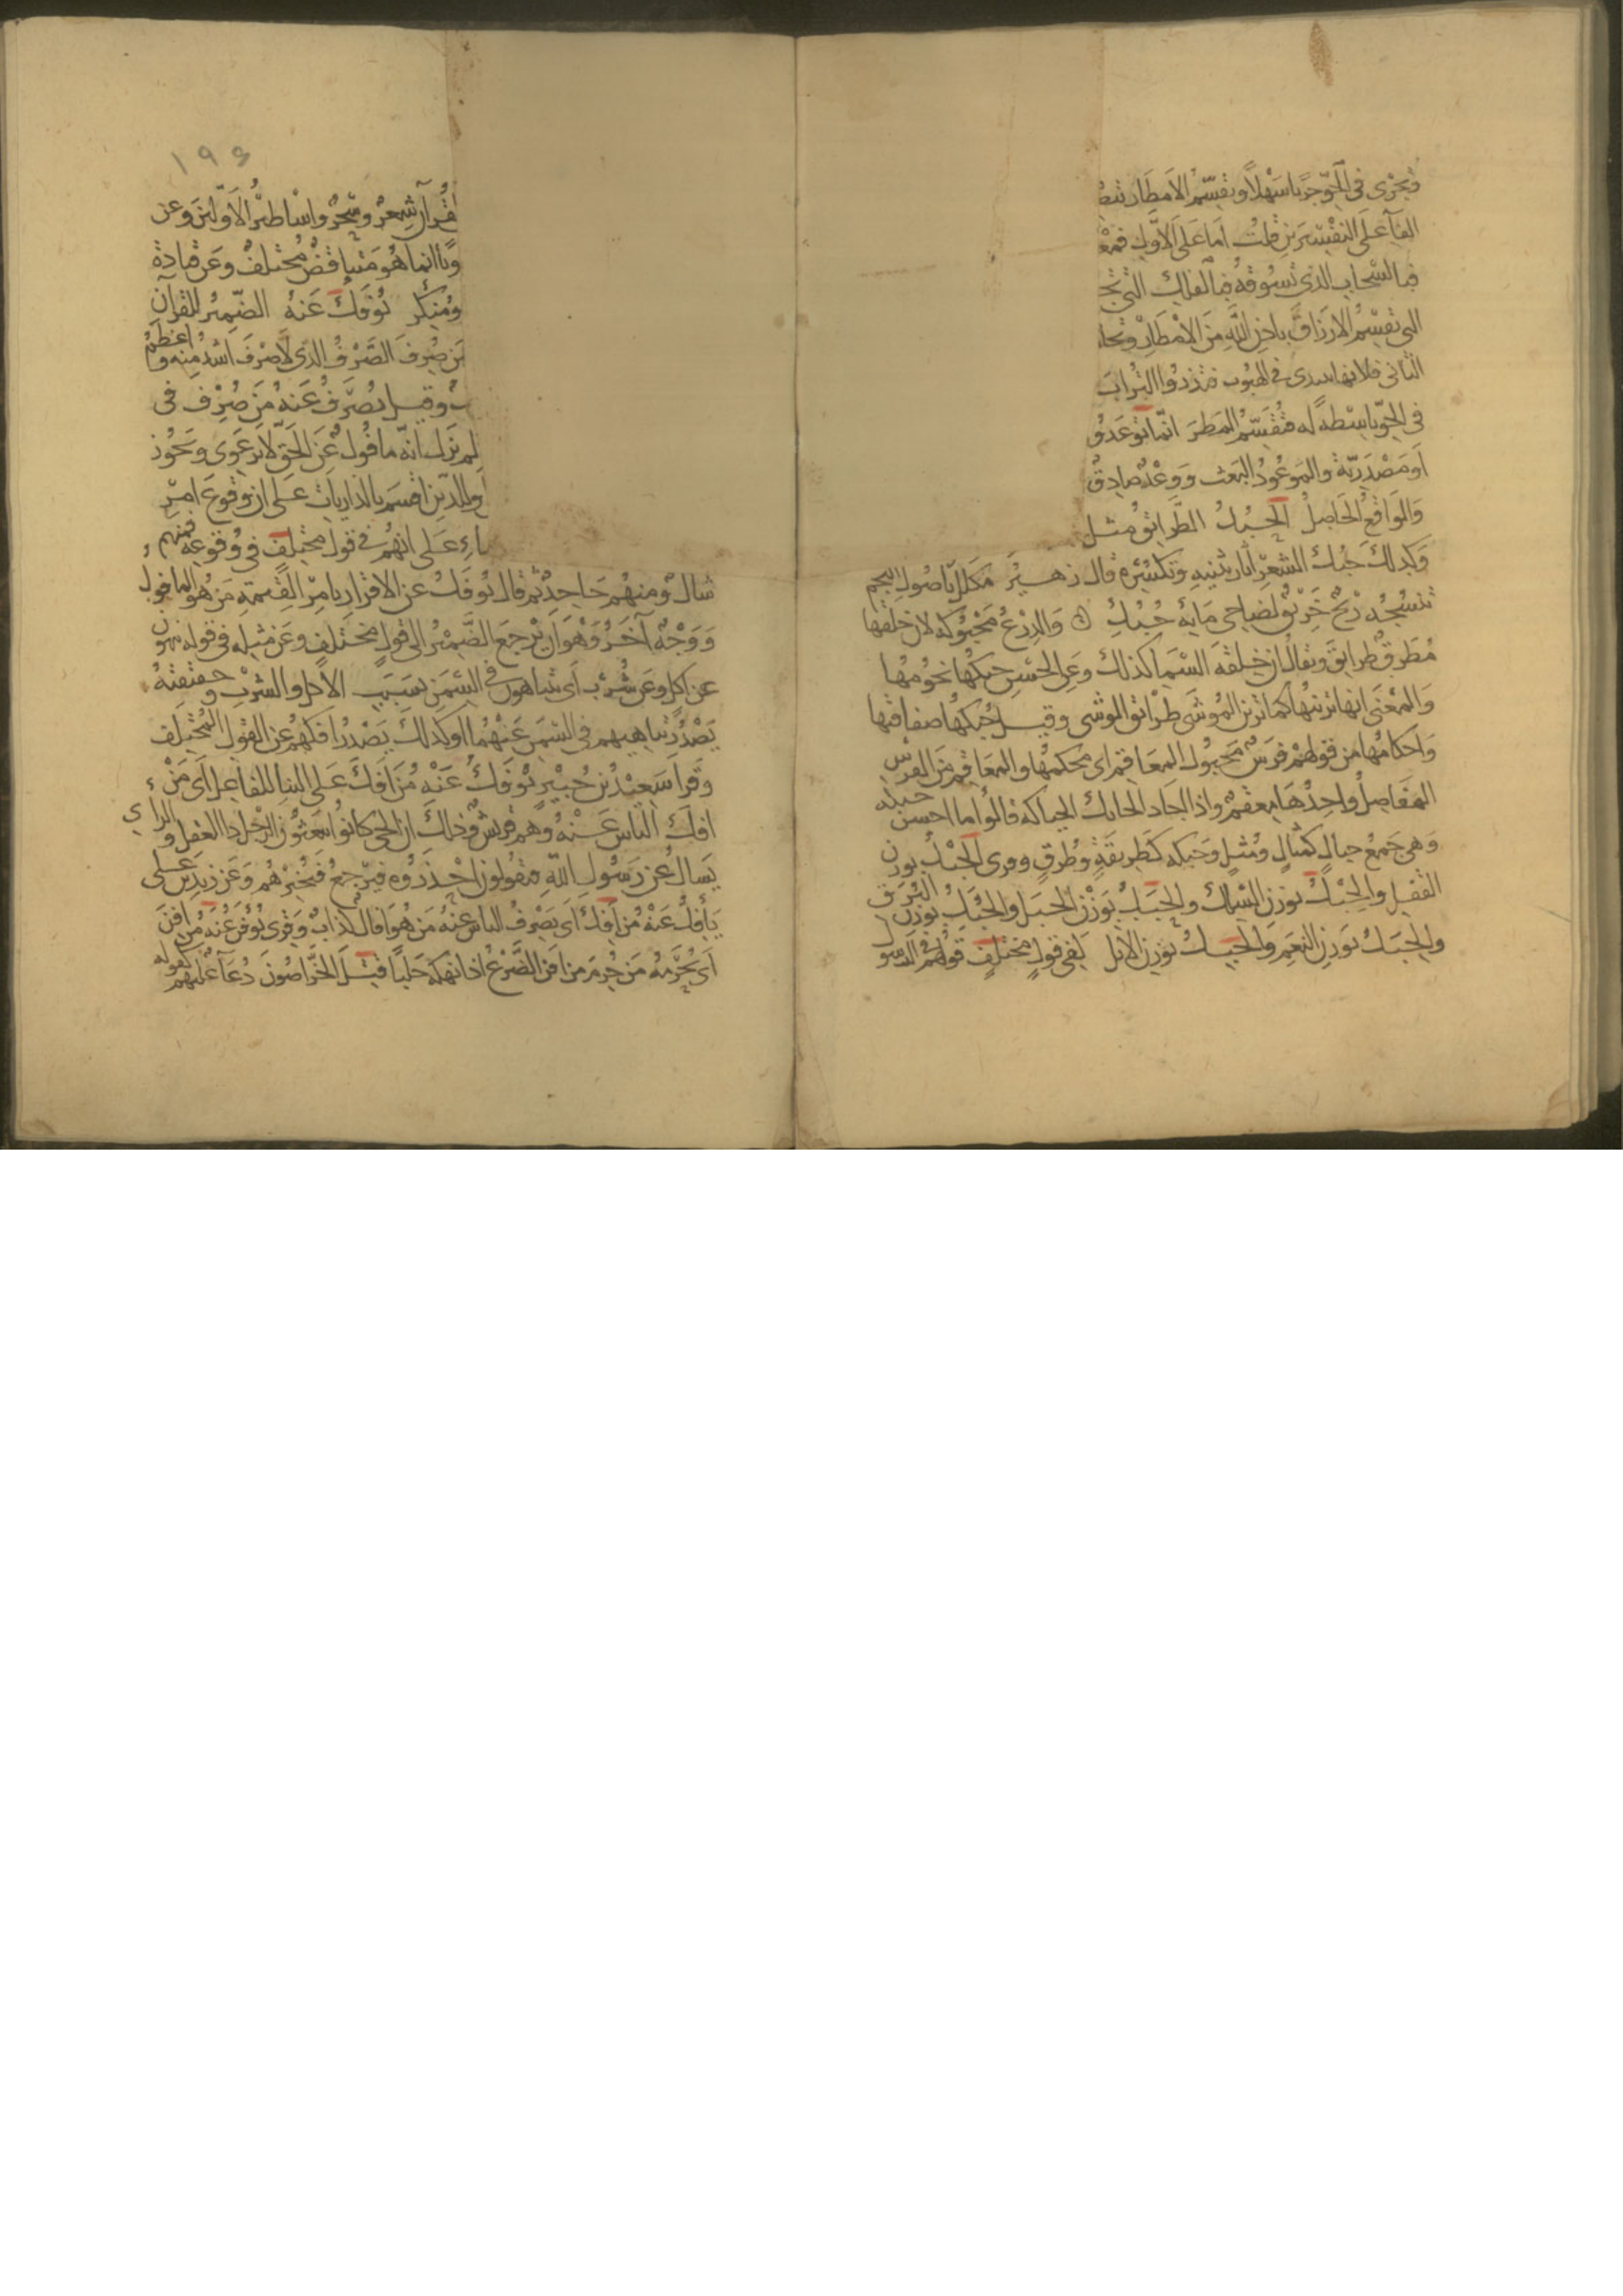 وتجرى فى الجو جريا سهلا وتقسم الامطار بتصر
الفاء على التفسيرين قلت اما على الاول فمعنى
فبالسحاب الذى تسوقه فبالفلك التى تجر
التى تقسم الارزاق باذن الله من الامطار وتجا
الثانى فلانها تبتدى فى الهبوب فتذروا التراب
فى الجو باسطة له فتقسم المطر انما توعدون
او مصدرية والموعود البعث ووعد صادق
والواقع الحاصل الحبك الطرائق مثل
وكذلك حبك الشعر آثار تثنيه وتكسره قال زهير مكلل باصول النجم
تنسجه ريح خريق لضاحى مائه حبك والدرع محبوكة لان حلقها
مطرق طرايق ويقال ان خلقة السماء كذلك وعن الحسن حبكها نجومها
والمعنى انها تزينها كما تزين الموشى طرائق الوشى وقيل حبكها صفاقتها
واحكامها من قولهم فرس محبوك المعاقم اى محكمها والمعاقم من الفرس
المفاصل واحدها معقم واذا اجاد الحائك الحياكة قالوا ما احسن حبكه
وهى جمع حباك كمثال ومثل وحبكه كطريقة وطرق وقرى الحبك بوزن
القفل والحبك بوزن السلك والحبك بوزن الجبل والحبك بوزن البرق
والحبك بوزن النعم والحبك بوزن الابل لفى قول مختلف قولهم فى الرسول
١٩٤
لقرآن شعر وسحر واساطير الاولين وعن
وبا انما هو متناقض مختلف وعن قتادة
ومنكر يوفك عنه الضمير للقرآن
من صرف الصرف الذى لا صرف اشد منه واعظم
وقيل يصرف عنه من صرف فى
لم يزل انه مافوك عن الحق لا يرعوى ويجوز
والدين اقسم بالذاريات على ان وقوع امر
ماء على انهم فى قول مختلف فى وقوعه فمنهم
شاك ومنهم جاحد ثم قال يوفك عن الاقرار بامر القيمة من هو المافوك
ووجه آخر وهو ان يرجع الضمير الى قول مختلف وعن مثله فى قوله ينهون
عن اكل وعن شرب اى يتناهون فى السمن بسبب الاكل والشرب وحقيقته
يصدر تناهيهم فى السمن عنهما وكذلك يصدر افكهم عن القول المختلف
وقرا سعيد بن جبير يوفك عنه من افك على البناء للفاعل اى من
افك الناس عنه وهم قريش وذلك ان الحى كانوا يبعثون الرجل ذا العقل والراى
يسال عن رسول الله فيقولون احذروه فيرجع فيخبرهم وعن زيد بن على
يأفك عنه من افك اى يصرف الناس عنه من هو افاك كذاب وقرى يوفن عنه من افن
اى يحرمه من حرم من افن الضرع اذا نهكه حلبا قتل الخراصون دعاء عليهم كقوله